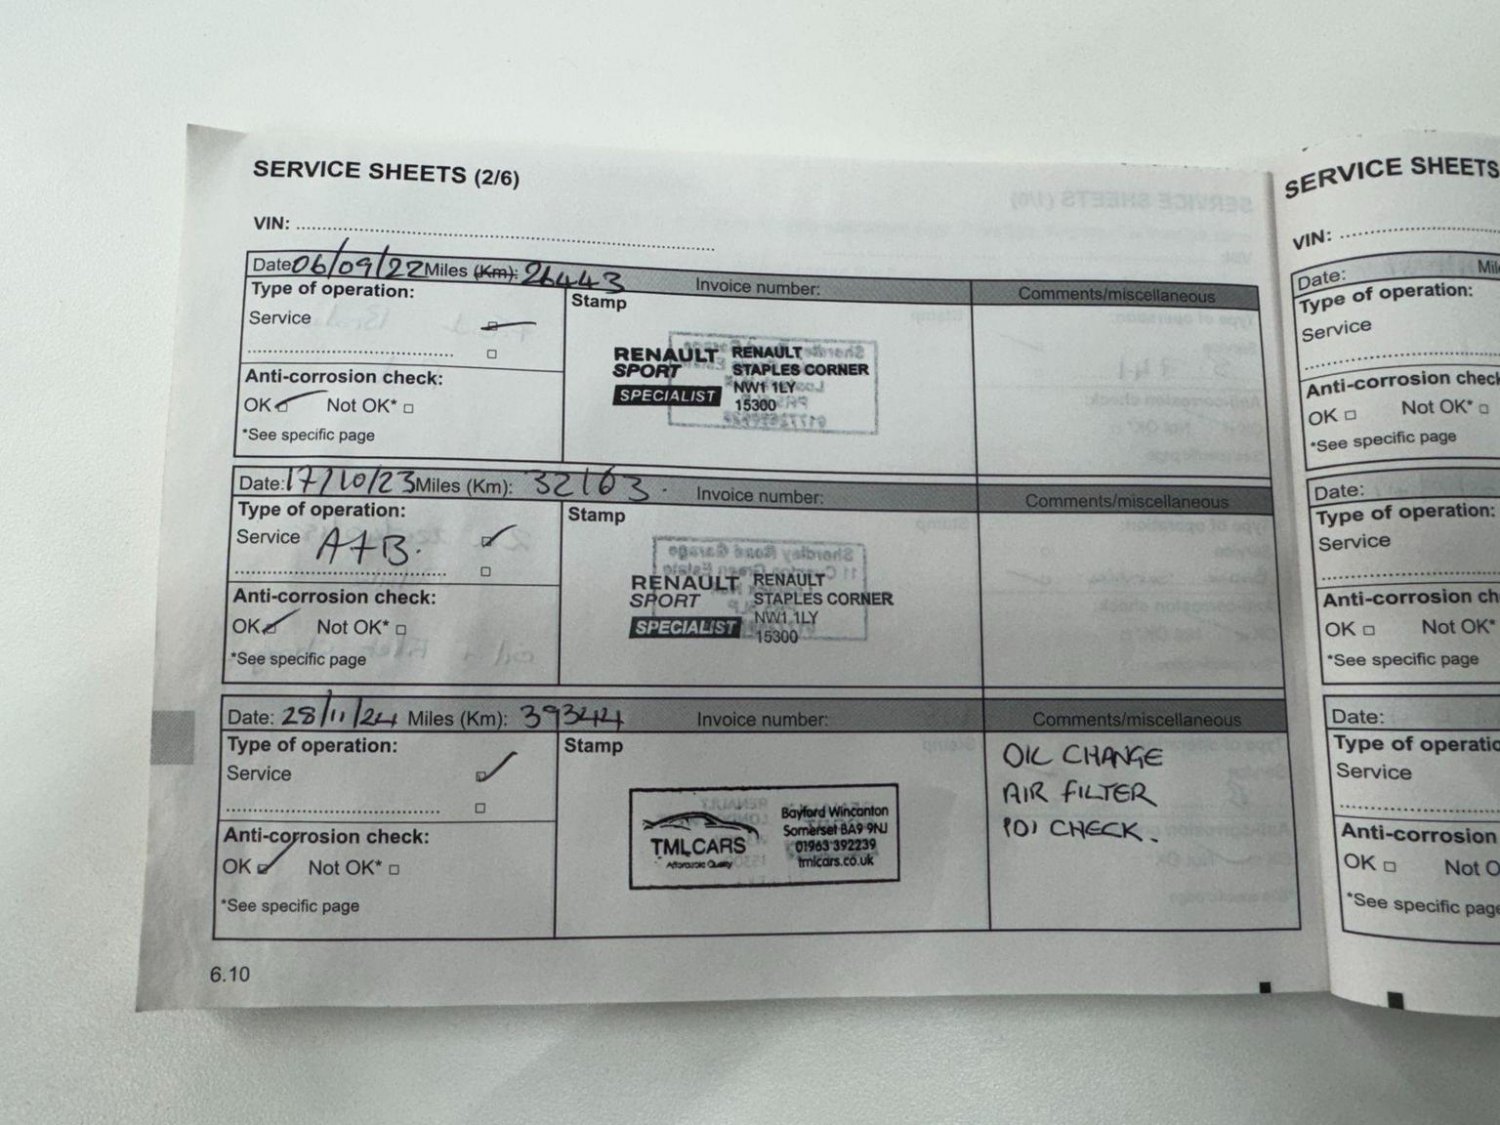 SERVICE SHEETS (2/6)
VIN:
Date 06/09/22 Miles (Km): 26443 Invoice number: Comments/miscellaneous
Type of operation: Stamp
Service
RENAULT SPORT SPECIALIST
RENAULT
STAPLES CORNER
NW1 1LY
15300
Anti-corrosion check:
OK Not OK*
*See specific page
Date: 17/10/23 Miles (Km): 32163. Invoice number: Comments/miscellaneous
Type of operation: Stamp
Service A+B.
RENAULT SPORT SPECIALIST
RENAULT
STAPLES CORNER
NW1 1LY
15300
Anti-corrosion check:
OK Not OK*
*See specific page
Date: 28/11/24 Miles (Km): 39344 Invoice number: Comments/miscellaneous
Type of operation: Stamp
Service
TMLCARS
Affordable Quality
Bayford Wincanton
Somerset BA9 9NJ
01963 392239
tmlcars.co.uk
OIL CHANGE
AIR FILTER
101 CHECK.
Anti-corrosion check:
OK Not OK*
*See specific page
6.10
SERVICE SHEETS
VIN:
Date:
Type of operation:
Service
Anti-corrosion check
OK Not OK*
*See specific page
Date:
Type of operation:
Service
Anti-corrosion ch
OK Not OK*
*See specific page
Date:
Type of operatio
Service
Anti-corrosion
OK Not O
*See specific page